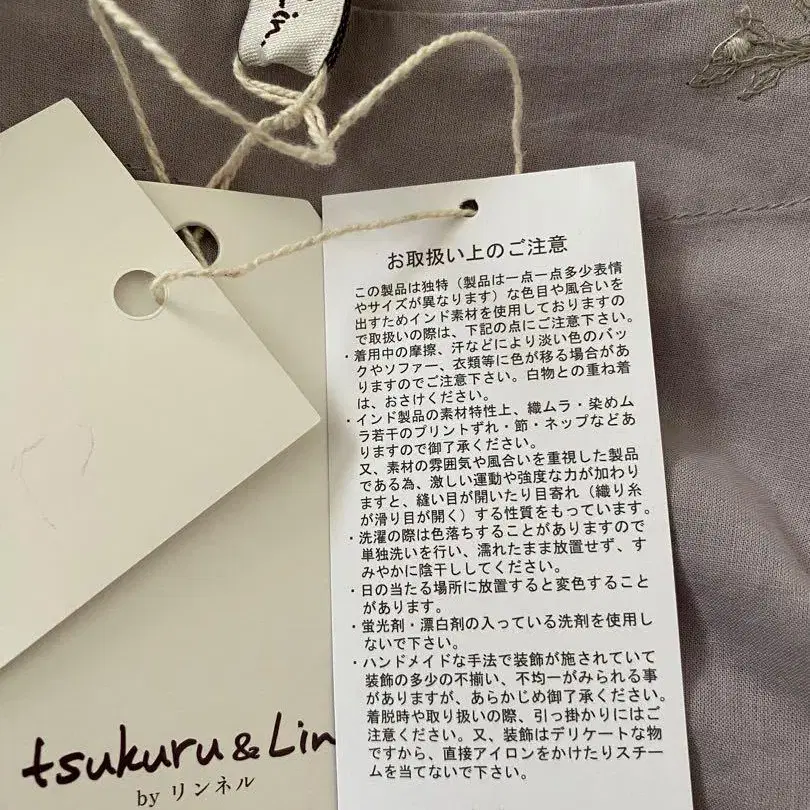 in.
お取扱い上のご注意
この製品は独特（製品は一点一点多少表情
やサイズが異なります）な色目や風合いを
出すためインド素材を使用しておりますの
で取扱いの際は、下記の点にご注意下さい。
・着用中の摩擦、汗などにより淡い色のバッ
クやソファー、衣類等に色が移る場合があ
りますのでご注意下さい。白物との重ね着
は、おさけください。
・インド製品の素材特性上、織ムラ・染めム
ラ若干のプリントずれ・節・ネップなどあ
りますので御了承ください。
又、素材の雰囲気や風合いを重視した製品
である為、激しい運動や強度な力が加わり
ますと、縫い目が開いたり目寄れ（織り糸
が滑り目が開く）する性質をもっています。
・洗濯の際は色落ちすることがありますので
単独洗いを行い、濡れたまま放置せず、す
みやかに陰干ししてください。
・日の当たる場所に放置すると変色すること
があります。
・蛍光剤・漂白剤の入っている洗剤を使用し
ないで下さい。
・ハンドメイドな手法で装飾が施されていて
装飾の多少の不揃い、不均一がみられる事
がありますが、あらかじめ御了承ください。
着脱時や取り扱いの際、引っ掛かりにはご
注意ください。又、装飾はデリケートな物
ですから、直接アイロンをかけたりスチー
ムを当てないで下さい。
tsukuru & Lin
by リンネル